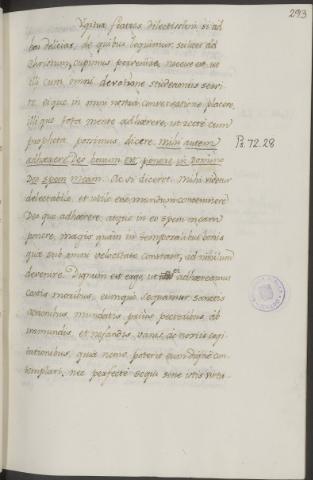 293
Igitur fratres dilectissimi si ad
has delicias, de quibus loquimur, scilicet ad
Christum, cupimus pervenire, necesse est, ut
illi cum omni devotione studeamus servi-
re, eique in omni nostra conversatione placere,
illique tota mente adhaerere, ut recte cum
propheta possimus dicere: mihi autem
adhaerere Deo bonum est, ponere in Domino
Deo spem meam. Ac si diceret: Mihi videtur
delectabile, et utile esse, mundum contemnere
Deo que adhaerere, atque in eo spem meam
ponere, magis quam in temporalibus bonis
quae sub omni velocitate constant, ad nihilum
devenire. Dignum est ergo, ut ei adhaereamus
castis moribus, eumque sequamur sanctis
actionibus, mundatis prius pectoribus, ab
immundis, et nefandis, vanis, ac noxiis cogi-
tationibus, quia nemo poterit eum digne con-
templari, nec perfecte sequi sine istis virtu-
Ps. 72. 28